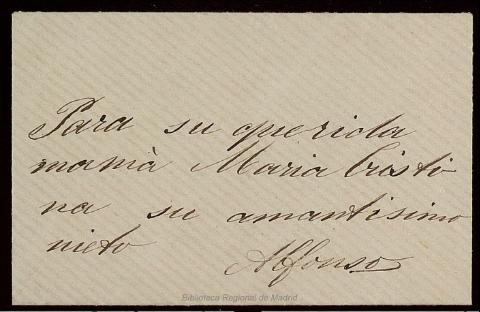 Para su querida
mamà Maria Cristi
na su amantisimo
nieto
Alfonso
Biblioteca Regional de Madrid